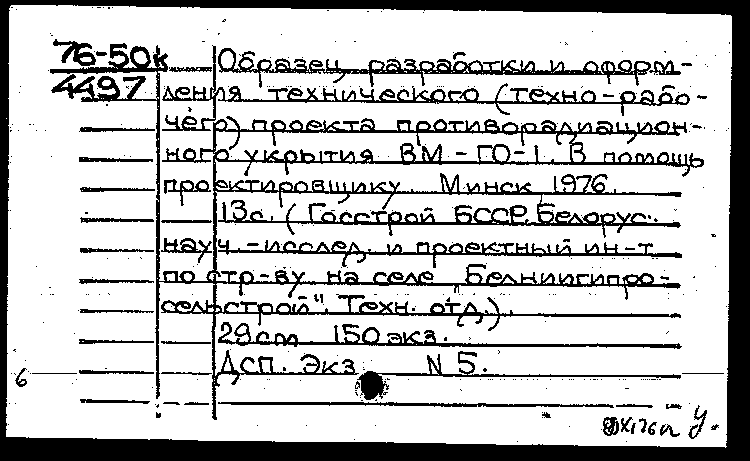 76-50к Образец разработки и оформ-
4497 ления технического (техно-рабо-
чего) проекта противорадиацион-
ного укрытия ВМ-ГО-1. В помощь
проектировщику. Минск, 1976.
13с. (Госстрой БССР. Белорус.
науч.-исслед. и проектный ин-т
по стр-ву на селе "Белниигипро-
сельстрой". Техн. отд.).
29см 150 экз.
ДСП. Экз. N 5.
6